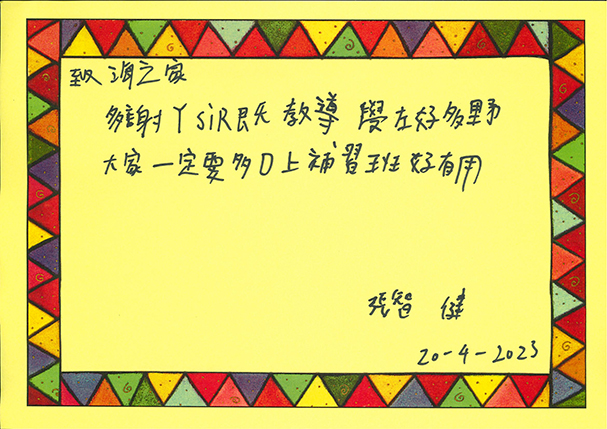 致 海之家
多謝 丫 SiR 既 教導 學左好多野
大家一定要多D上補習班好有用
張智 健
20-4-2023